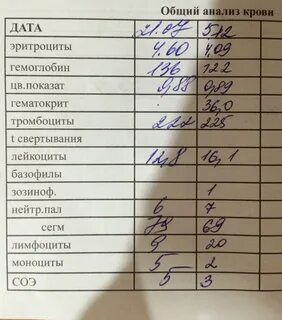 Общий анализ крови
ДАТА 21.07 5.12
эритроциты 4.60 4,09
гемоглобин 136 122
цв.показат 0,88 0,89
гематокрит 36,0
тромбоциты 222 225
t свертывания
лейкоциты 12,8 16,1
базофилы
эозиноф. 1
нейтр.пал 6 7
сегм 73 69
лимфоциты 9 20
моноциты 5 2
СОЭ 5 3